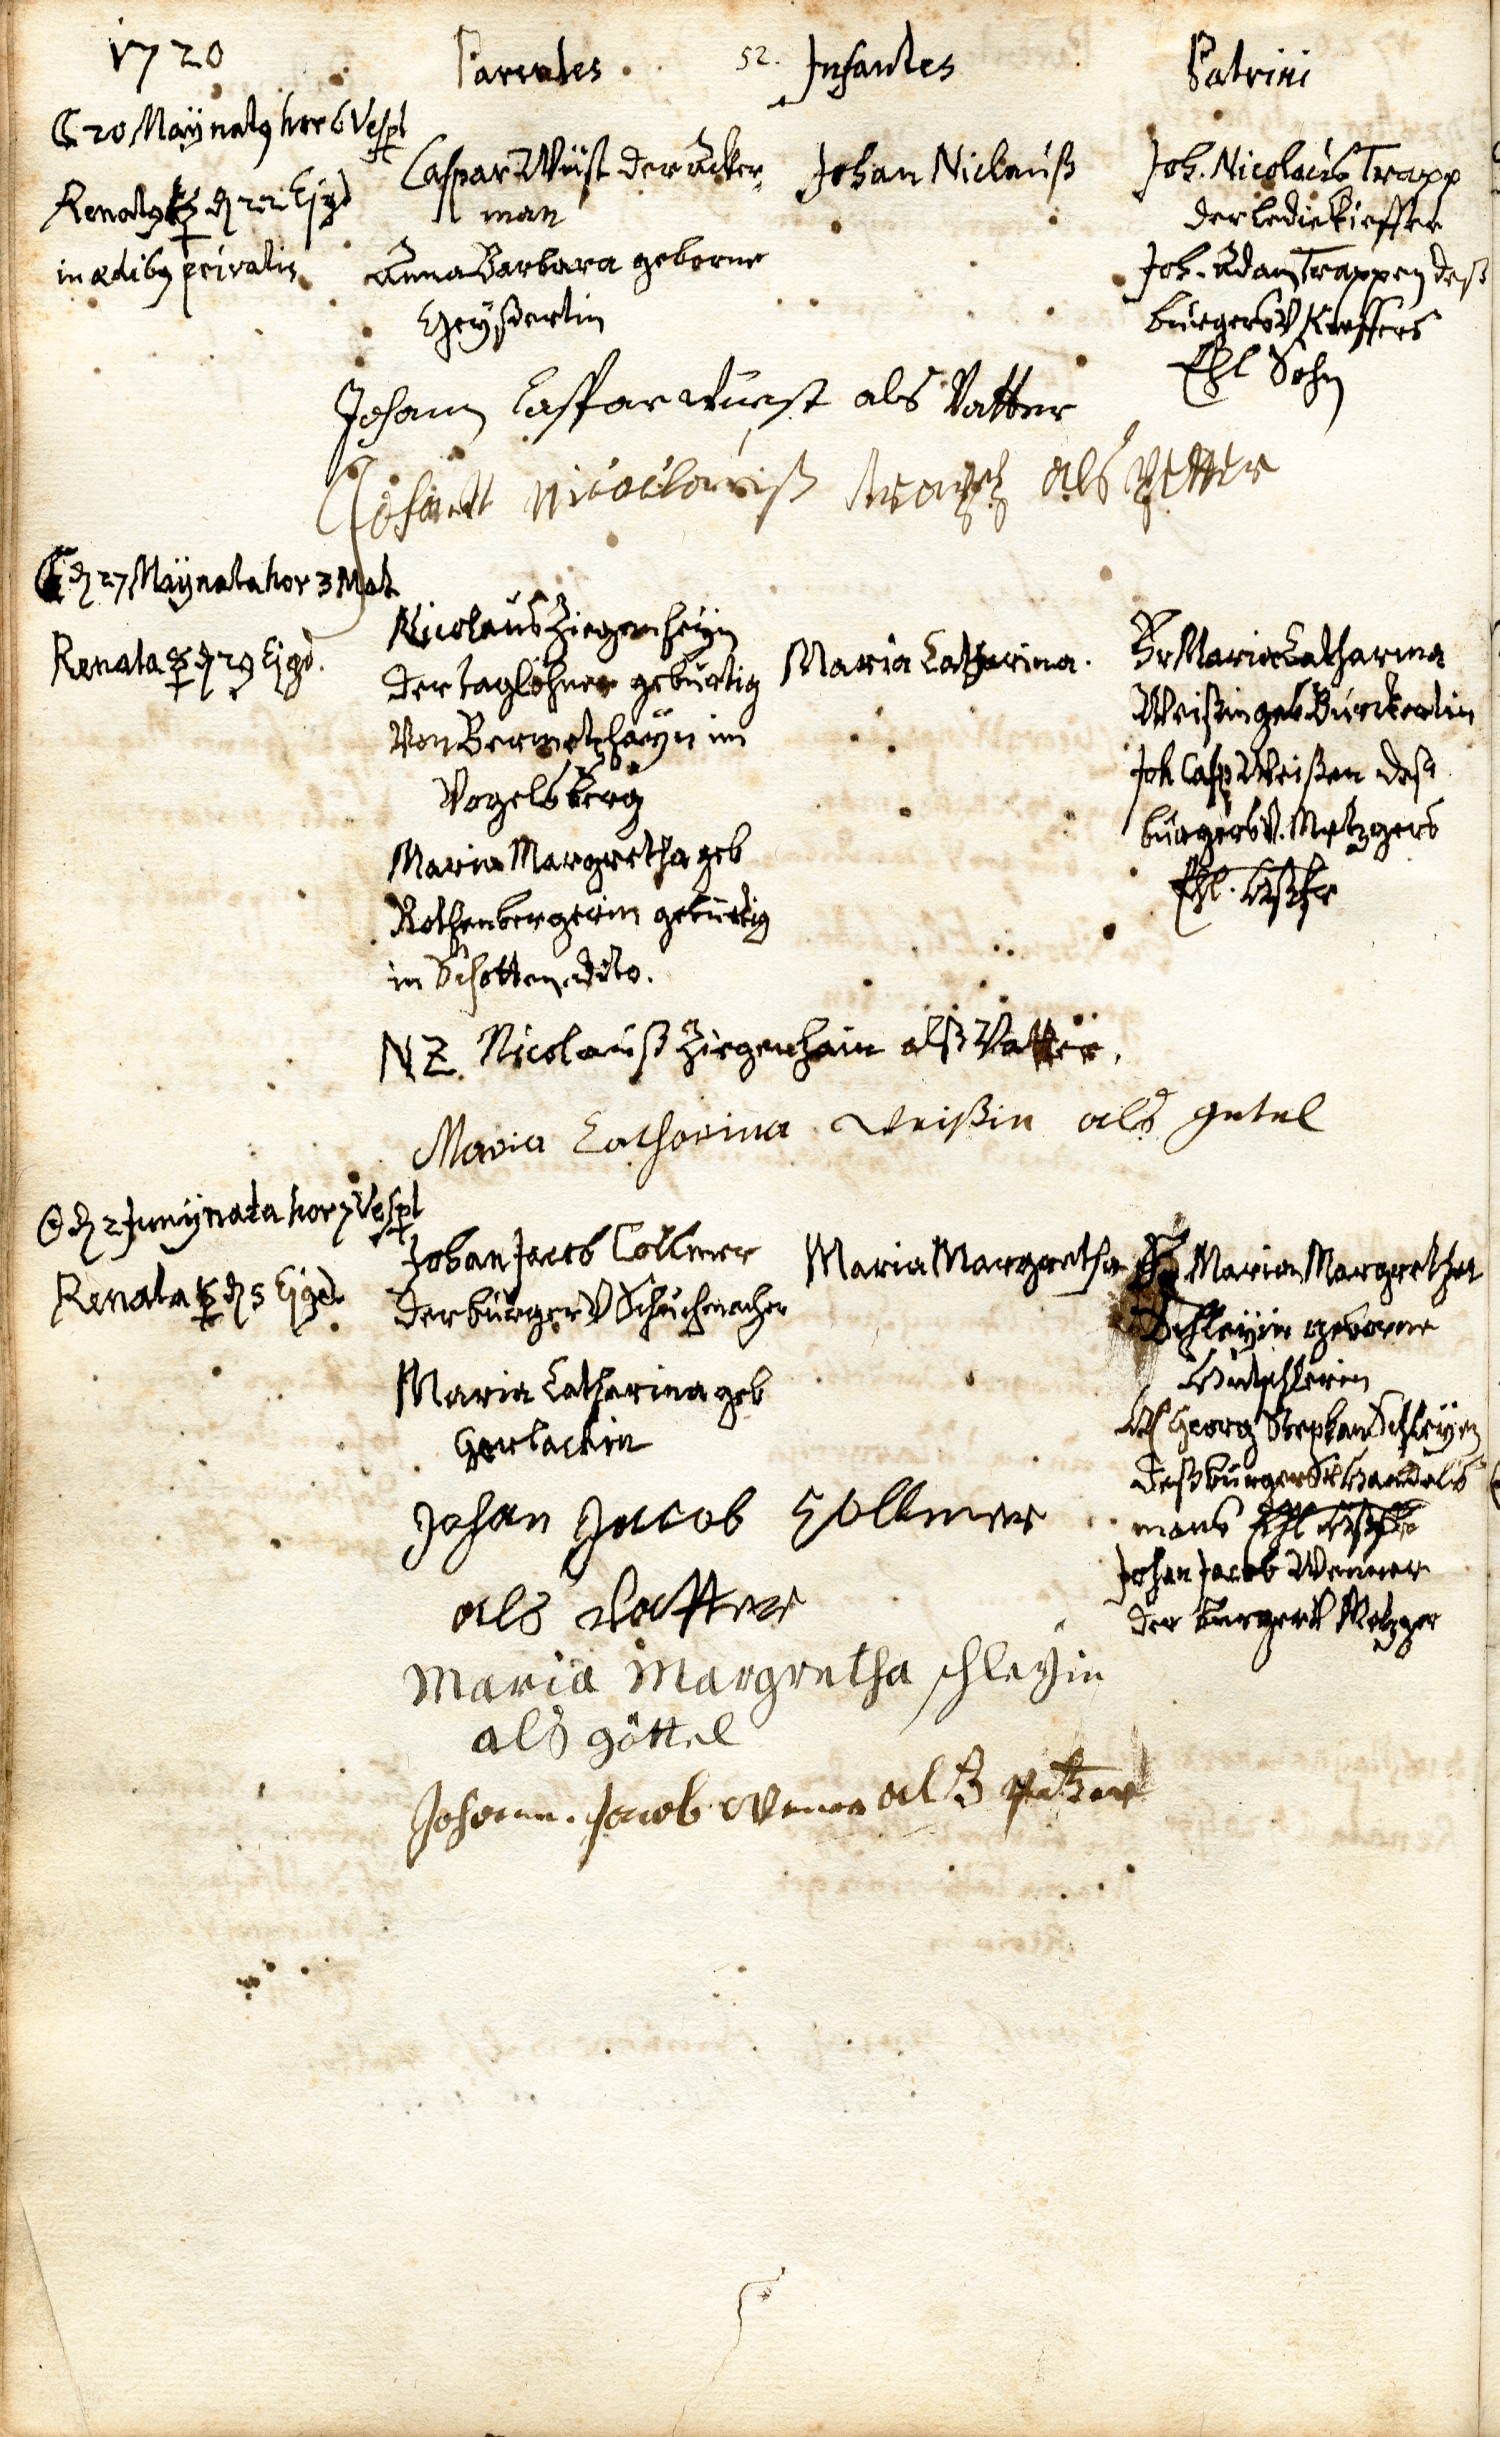 1720
Parentes
52.
Infantes
Patrini
☾ 20 Maÿ natq hor 6 Vesp
Renatq ☿ d 22 Ejqd
in ædibq privatis
Caspar Wüst der Acker
man
Anna Barbara geborne
Geÿßertin
Johan Niclauß
Joh. Nicolaus Trapp
der ledie Kieffer
Joh. Adam Trappen deß
burgers v Kieffers
Ehl Sohn
Johann Casspar wuest als Vatter
Johann nicoclauiß als Petter
☾ d 27 Maÿ nata hor 3 Mat
Renata ☿ d 29 Ejqd.
Nicolaus Ziegenheÿn
der taglöhner gebürtig
Von Bermetzhaÿn im
Vogelsberg
Maria Margretha geb
Rothenbergerin gebürtig
in Schotten dito.
Maria Catharina.
Fr Maria Catharina
Weißin geb Burckartin
Joh Casp Weißen deß
burgers v. Metzgers
Ehl. Haußfr
NZ. Nicolauß Ziegenhain alß Vatter,
Maria Catharina Weißin als getel
☉ d 2 Junÿ nata hor 7 Vesp
Renata ☿ d 5 Ejqd.
Johan Jacob Collmer
der burger v Schuchmacher
Maria Catharina geb
Gerlachin
Maria Margretha
Fr Maria Margretha
Schleÿin geborne
H Georg Stephan Schleÿen
deß burgers v Handels
mans Ehl Haußfr
Johan Jacob Wenner
der burger v Metzger
Johan Jacob Collmer
als Vatter
Maria Margretha schleÿin
als göttel
Johann Jacob Wener alß Petter